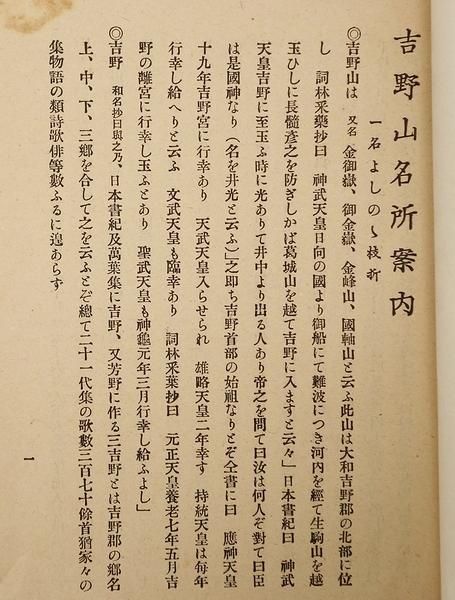 吉野山名所案内
一名よしのゝ枝折
◎吉野山は 又名 金御嶽、御金嶽、金峰山、國軸山と云ふ此山は大和吉野郡の北部に位
し 詞林釆藥抄曰 神武天皇日向の國より御船にて難波につき河内を經て生駒山を越
玉ひしに長髓彦之を防ぎしかば葛城山を越て吉野に入ますと云々」日本書紀曰 神武
天皇吉野に至玉ふ時に光ありて井中より出る人あり帝之を問て曰汝は何人ぞ對て曰臣
は是國神なり（名を井光と云ふ）之即ち吉野首部の始祖なりとぞ仝書に曰 應神天皇
十九年吉野宮に行幸あり 天武天皇入らせられ 雄略天皇二年幸す 持統天皇は毎年
行幸し給へりと云ふ 文武天皇も臨幸あり 詞林釆葉抄曰 元正天皇養老七年五月吉
野の離宮に行幸し玉ふとあり 聖武天皇も神龜元年三月行幸し給ふよし」
◎吉野 和名抄曰與之乃、日本書紀及萬葉集に吉野、又芳野に作る三吉野とは吉野郡の鄕名
上、中、下、三鄕を合して之を云ふとぞ總て二十一代集の歌數三百七十餘首猶家々の
集物語の類詩歌俳等數ふるに遑あらず
一